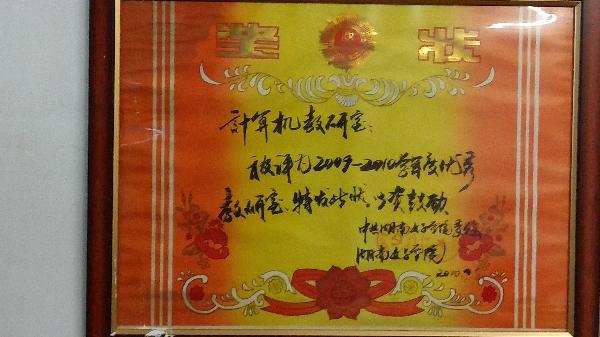 奖 状
计算机教研室：
被评为2009-2010学年度优秀
教研室 特发此状 以资鼓励
中共湖南女子学院委员会
湖南女子学院